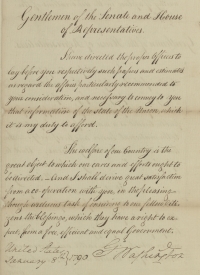 Gentlemen of the Senate and House
of Representatives.
I have directed the proper Officers to
lay before you respectively such papers and estimates
as regard the affairs particularly recommended to
your consideration, and necessary to convey to you
that information of the state of the Union which
it is my duty to afford.
The welfare of our Country is the
great object to which our cares and efforts ought to
be directed. And I shall derive great satisfaction
from a co-operation with you, in the pleasing
though arduous task of ensuring to our fellow citi-
zens the blessings, which they have a right to ex-
pect, from a free, efficient and equal Government.
United States
January 8th 1790
G Washington